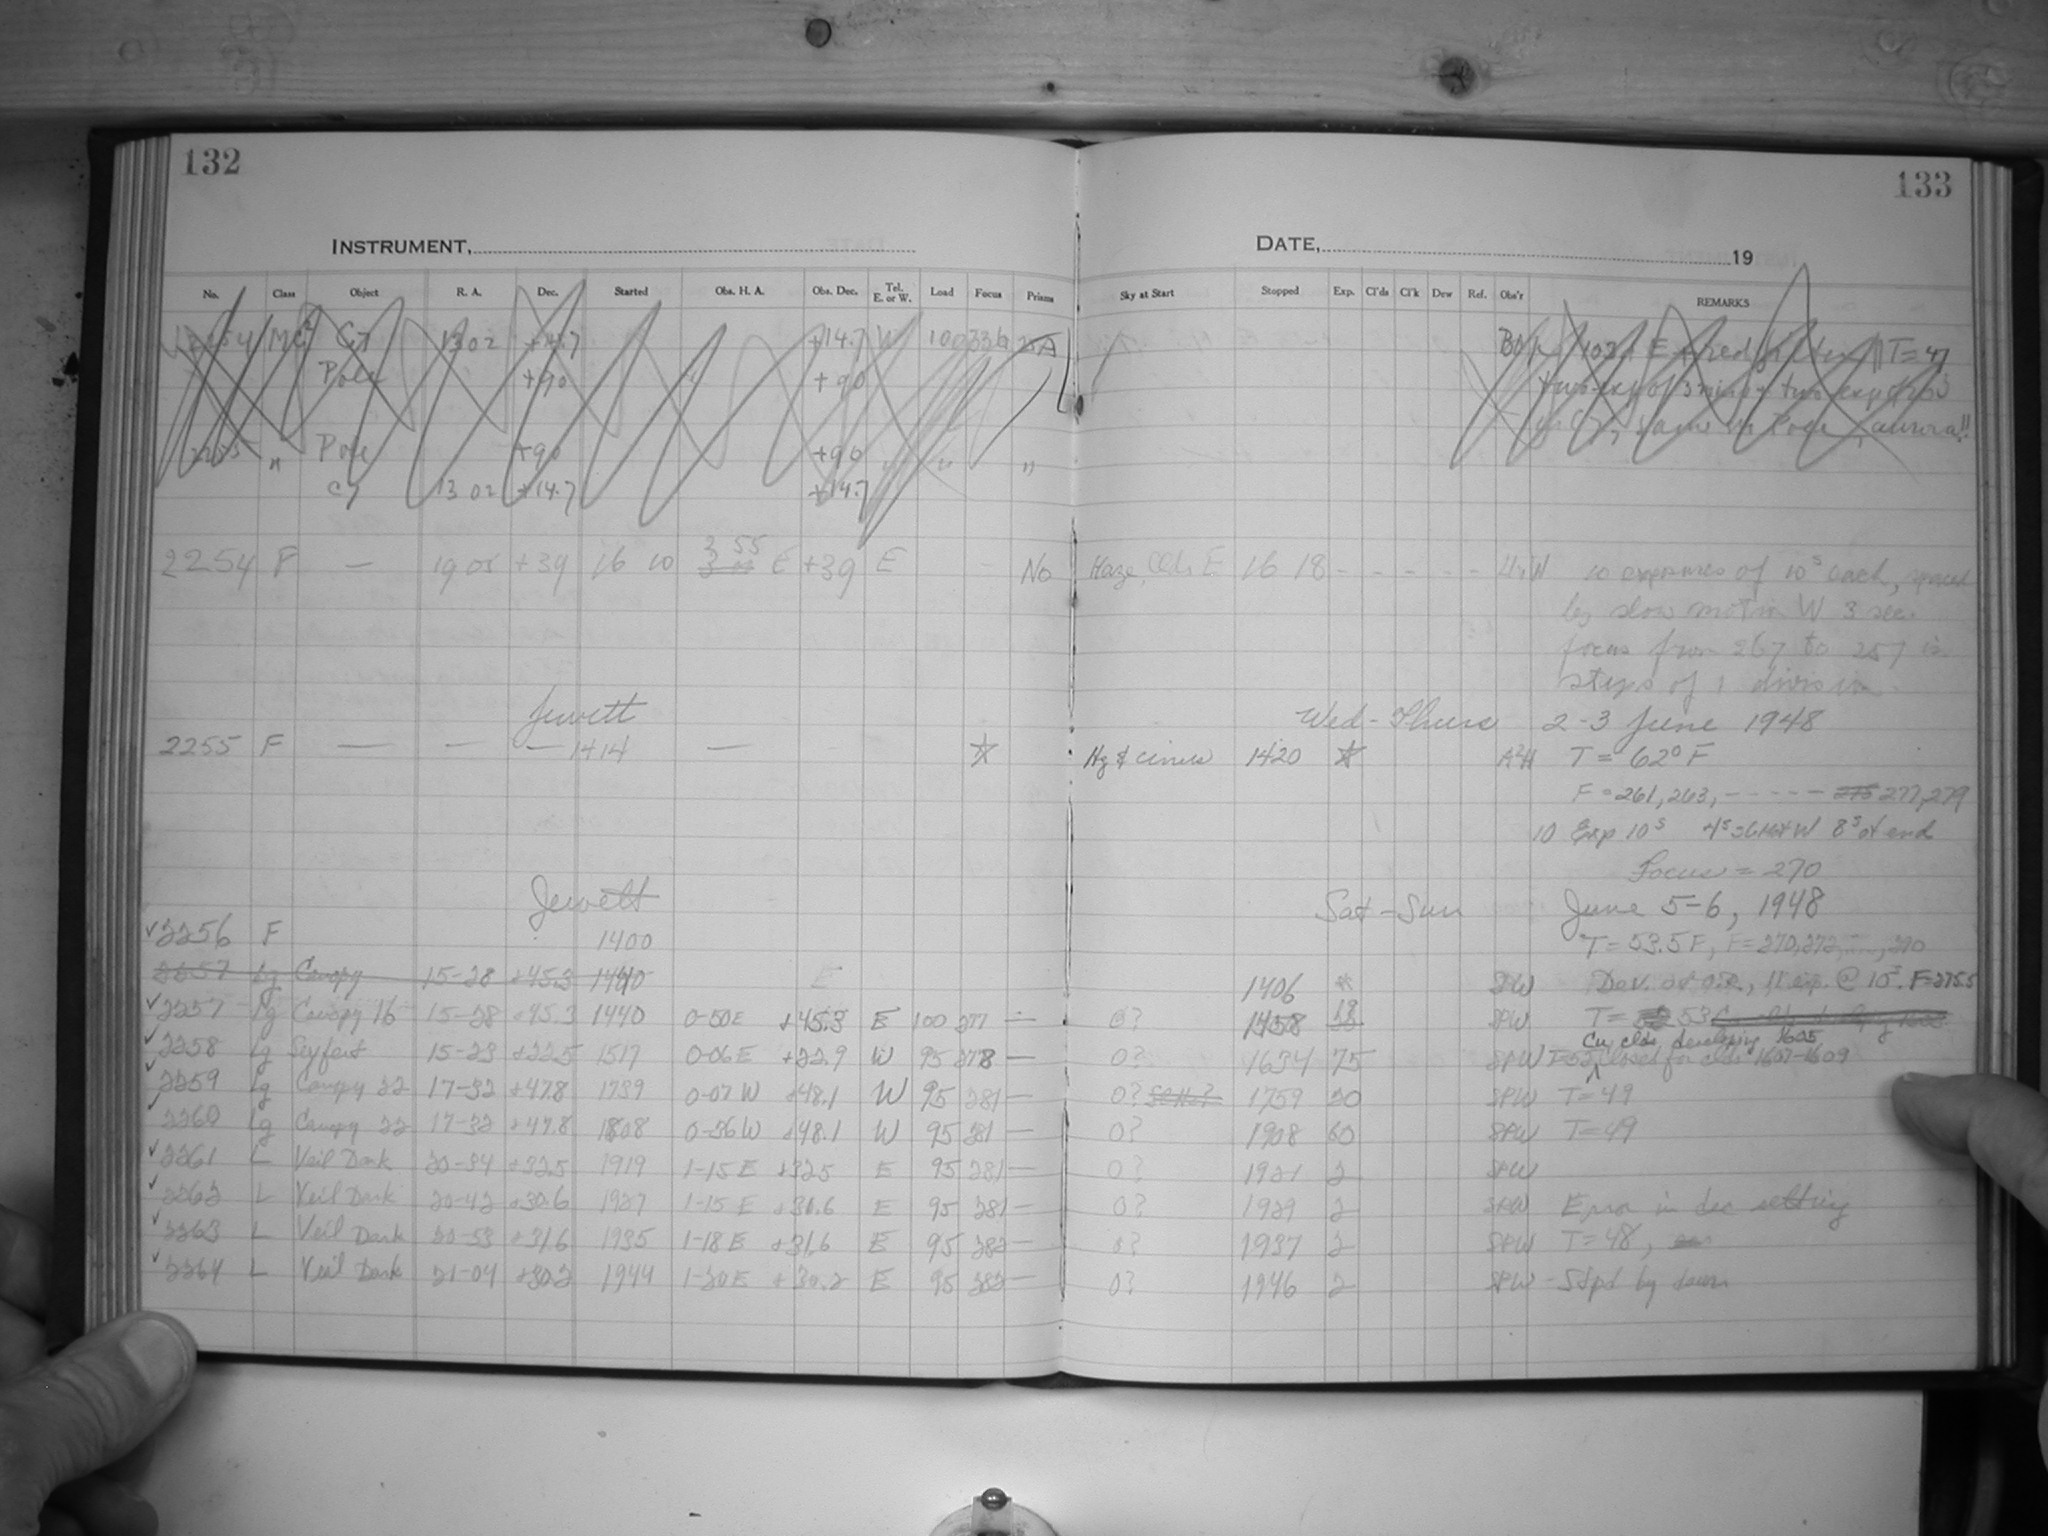 132
133
INSTRUMENT,
DATE, 19
No. Class Object R. A. Dec. Started Obs. H. A. Obs. Dec. Tel. E. or W. Load Focus Prisms Sky at Start Stopped Exp. Cl'ds Cl'k Dew Ref. Obs'r REMARKS
2254 C7 13 02 +14.7 +14.7 W 100 336 T=47
Pole +90 +90 two exp of 3 mins + two exp
2255 " Pole +90 +90 " " " same on Pole, aurora!!
C7 13 02 +14.7 +14.7
2254 F — 19 05 +39 16 10 3 55 E +39 E - No Haze, Clds E. 16 18 - - - - - 10 exposures of 10s each, spaced
by slow motion W 3 sec.
focus from 267 to 257 in
steps of 1 division.
Jewett Wed - Thurs 2-3 June 1948
2255 F — — — 1414 — ☆ Hz & cirrus 1420 ☆ A²H T = 62° F
F = 261, 263, ----- 275 277, 279
10 Exp 10s 4s W 8s at end
Focus = 270
Jewett Sat - Sun June 5-6, 1948
✓2256 F 1400 T = 53.5 F, F = 270, 272, ..., 290
2257 Lg Canopy 15-28 +45.3 1440 E 1406 * SPW Dev. 11 exp. @ 10s. F=275.5
✓2257 Lg Canopy 16 15-28 +45.3 1440 0-50E +45.3 E 100 277 — 0? 1458 18 SPW T = 53
Cu clds developing 1605
✓2258 Lg Seyfert 15-23 +22.5 1517 0-06E +22.9 W 95 278 — 0? 1634 75 SPW T=52 Closed for clds 1607-1609
✓2259 Lg Canopy 22 17-32 +47.8 1739 0-07 W +48.1 W 95 281 — 0? 1759 20 SPW T = 49
✓2260 Lg Canopy 22 17-32 +47.8 1808 0-36W +48.1 W 95 281 — 0? 1908 60 SPW T = 49
✓2261 L Veil Dark 20-34 +32.5 1919 1-15 E +32.5 E 95 281 — 0? 1921 2 SPW
✓2262 L Veil Dark 20-42 +30.6 1927 1-15 E +30.6 E 95 281 — 0? 1929 2 SPW Error in dec setting
✓2263 L Veil Dark 20-53 +31.6 1935 1-18 E +31.6 E 95 282 — 0? 1937 2 SPW T = 48,
✓2264 L Veil Dark 21-04 +30.2 1944 1-20 E +30.2 E 95 282 — 0? 1946 2 SPW - Stpd by dawn